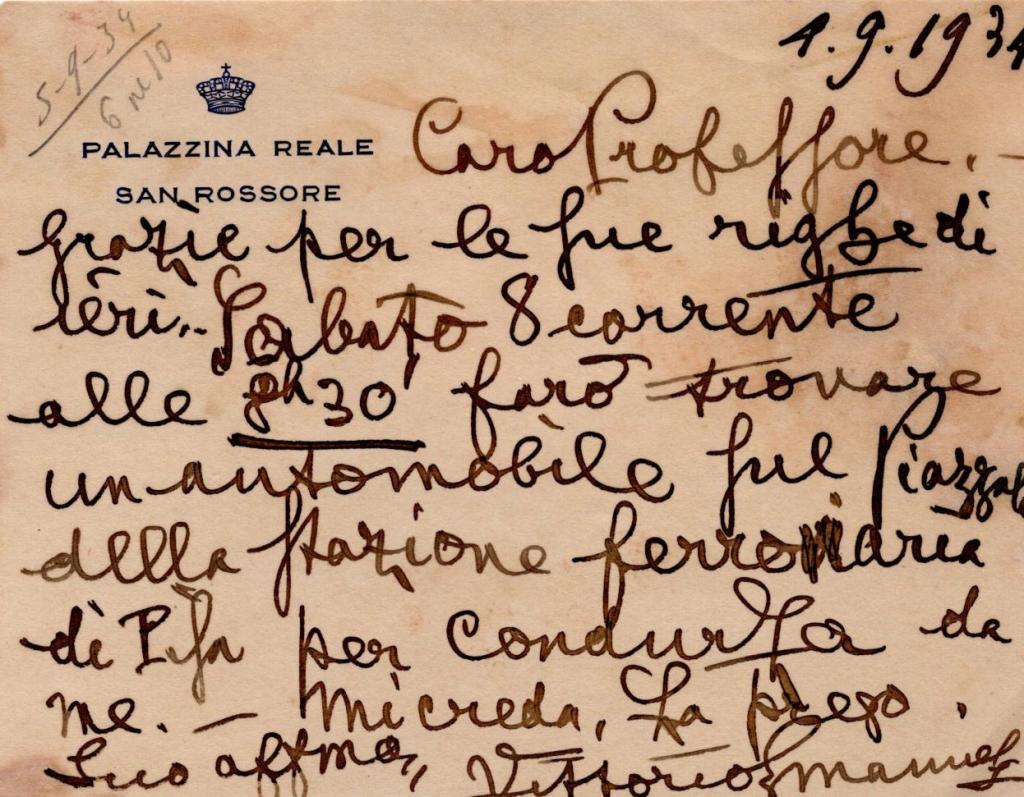 5-9-34
4.9.1934
PALAZZINA REALE
SAN ROSSORE
Caro Professore. -
Grazie per le sue righe di
ieri.. Sabato 8 corrente
alle 9h 30' farò trovare
un automobile sul Piazzal
della stazione ferroviaria
di Pisa per condurLa da
me. - Mi creda, La prego,
Suo affmo,, Vittorio Emanuele